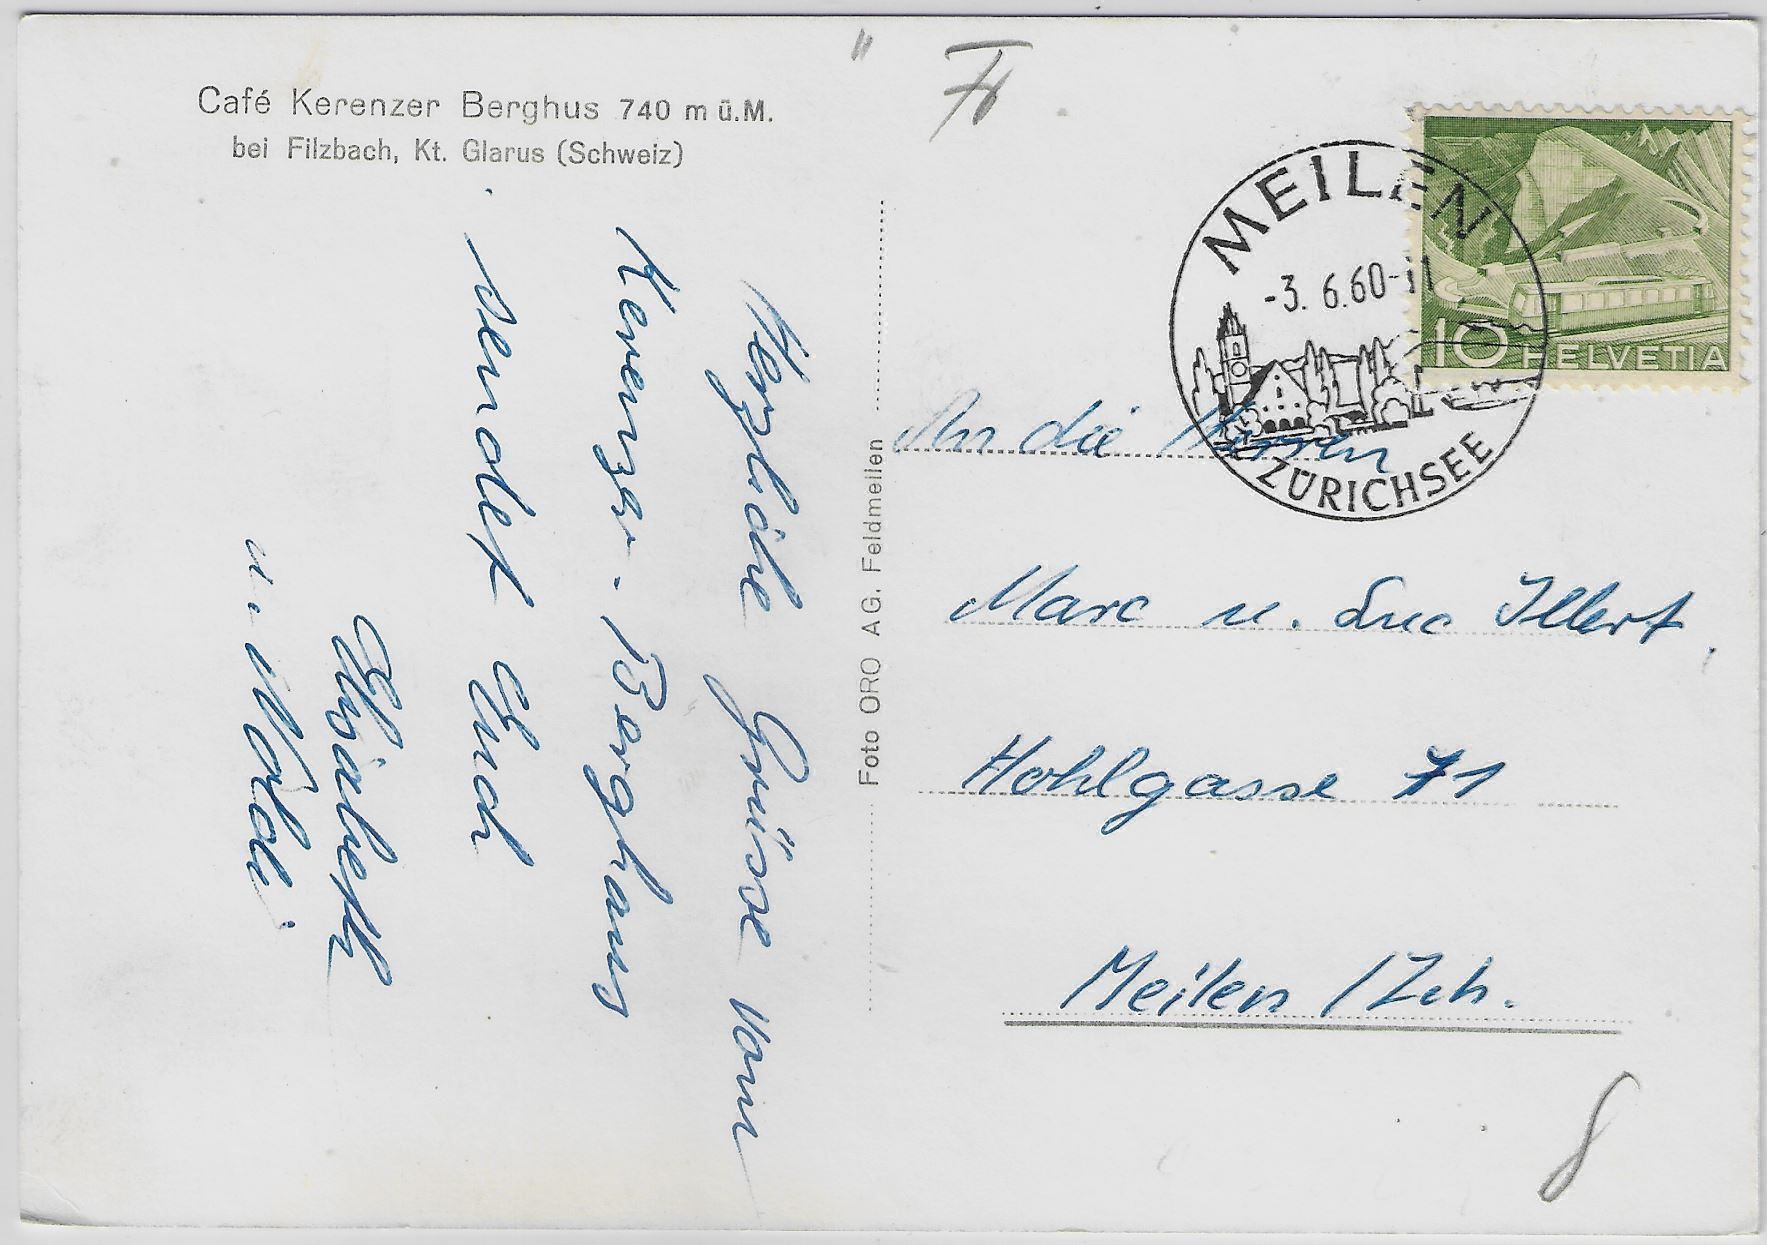 Café Kerenzer Berghus 740 m ü.M.
bei Filzbach, Kt. Glarus (Schweiz)
Herzliche Grüsse vom
Kerenzer-Berghaus
sendet Euch
Elisabeth
u. Noldi.
Foto ORO AG. Feldmeilen
MEILEN
-3. 6.60-11
ZÜRICHSEE
10 HELVETIA
An die Herren
Marc u. Luc Illert,
Hohlgasse 71
Meilen / Zch.
8